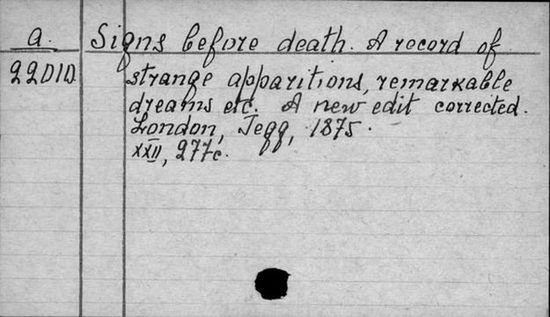 a. Signs before death. A record of
22010. strange apparitions, remarkable
dreams etc. A new edit corrected.
London, Tegg, 1875.
XXII, 277c.